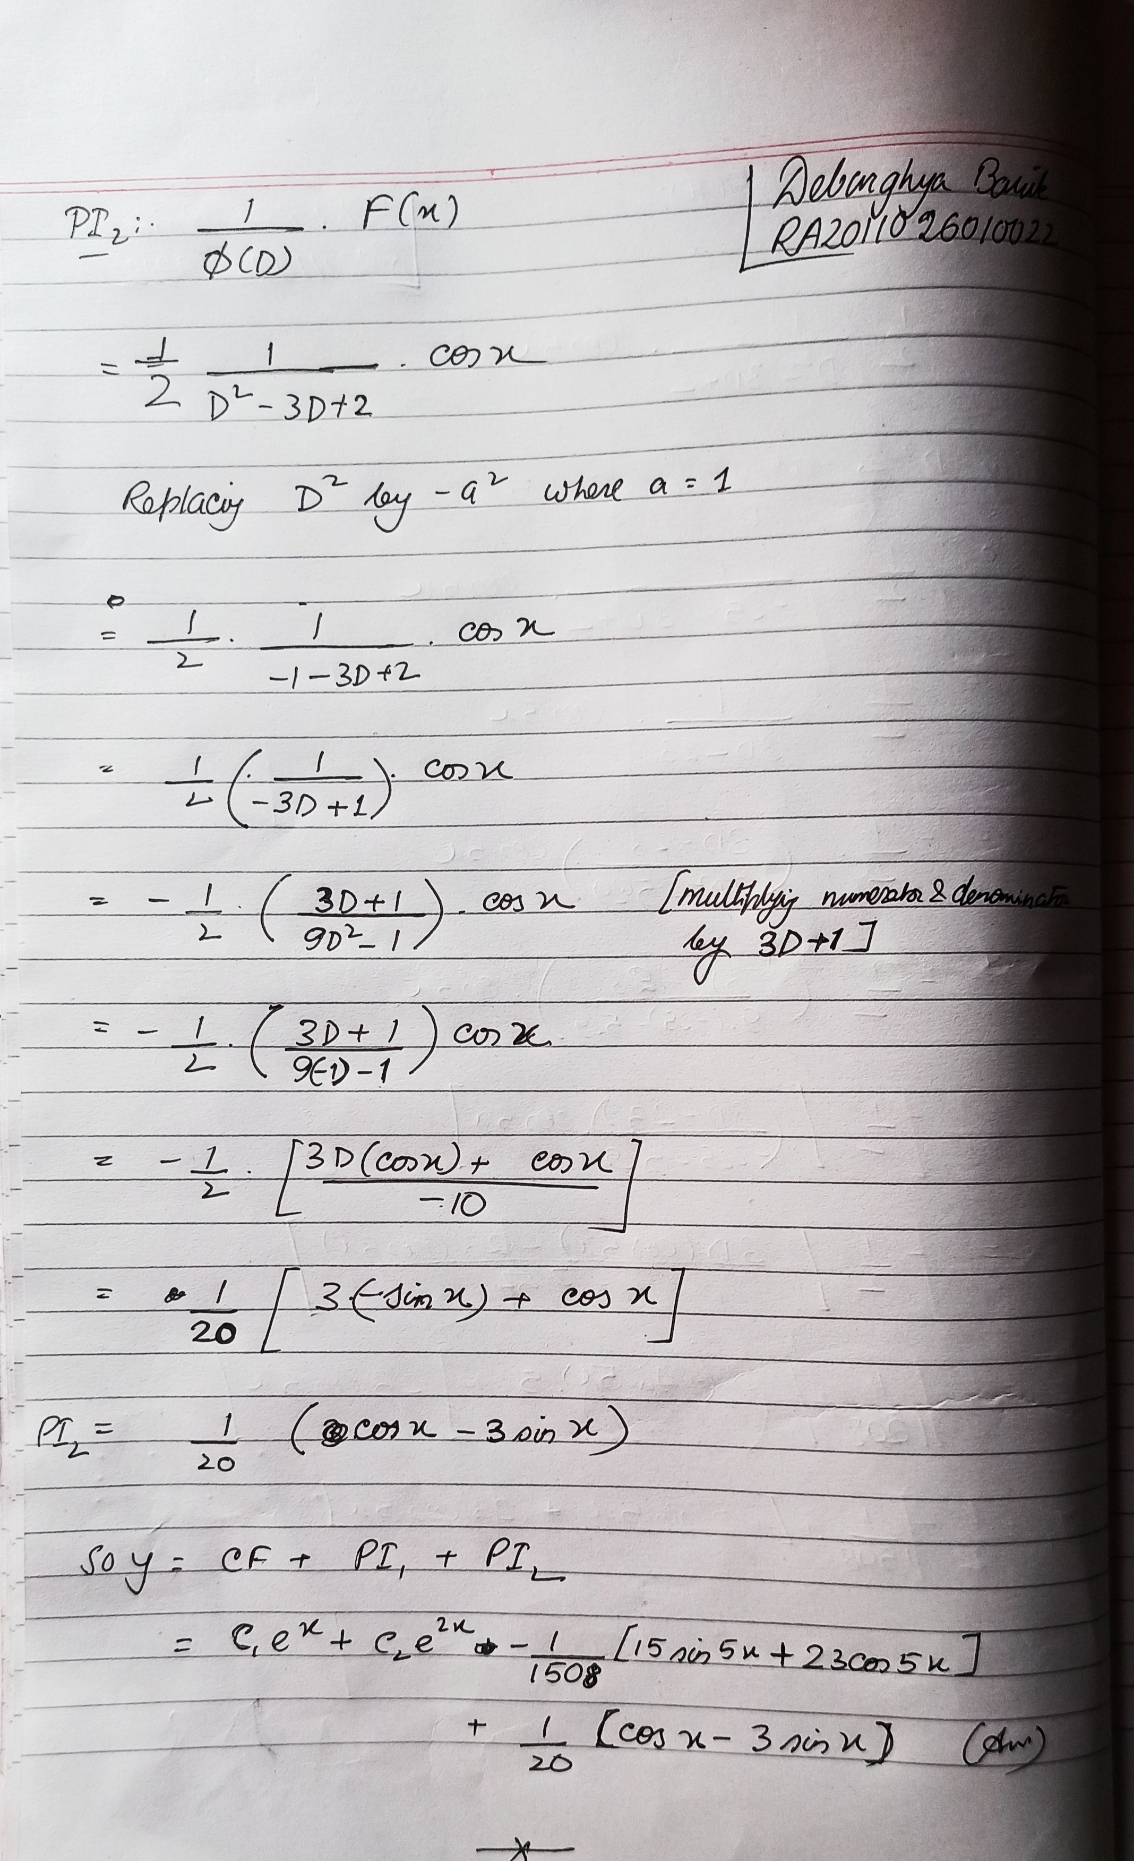 PI₂:. 1/ϕ(D) . F(x)
Debarghya Barik
RA2011026010022
= 1/2 1/(D² - 3D+2) . cos x
Replacing D² by -a² where a = 1
= 1/2 . 1/(-1-3D+2) . cos x
= 1/2 (. 1/(-3D+1)). cos x
= - 1/2 . ((3D+1)/(9D²-1)) . cos x [multiplying numerator & denominator
by 3D+1]
= - 1/2 . ((3D+1)/(9(-1)-1)) cos x
= - 1/2 . [(3D(cos x) + cos x)/(-10)]
= 1/20 [3(-sin x) + cos x]
PI₂ = 1/20 (cos x - 3 sin x)
So y = CF + PI₁ + PI₂
= C₁eˣ + C₂e²ˣ - 1/1508 [15 sin 5x + 23 cos 5x]
+ 1/20 [cos x - 3 sin x] (Ans)